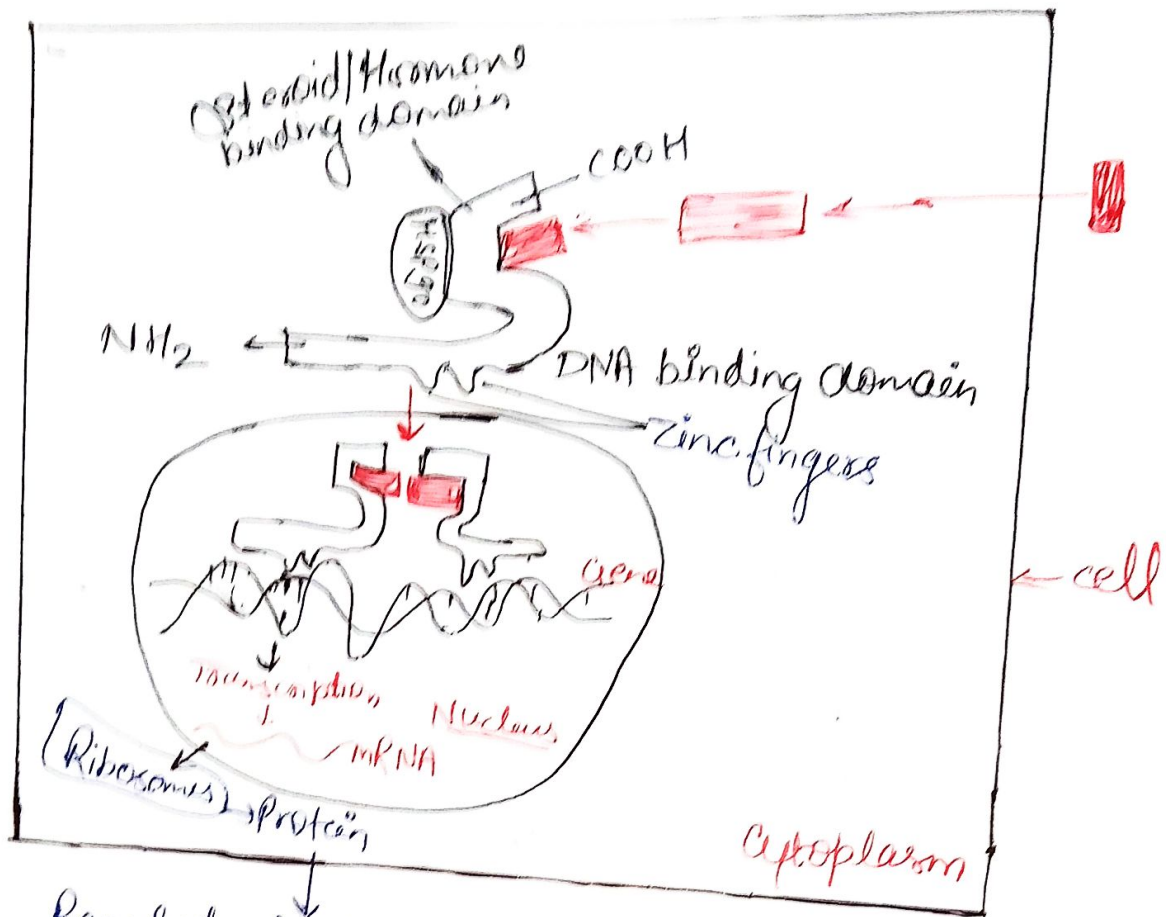 Steroid/Hormone
binding domain
COOH
HSP90
NH2
DNA binding domain
Zinc fingers
Gene
cell
Transcription
Nucleus
mRNA
Ribosomes
Protein
Cytoplasm